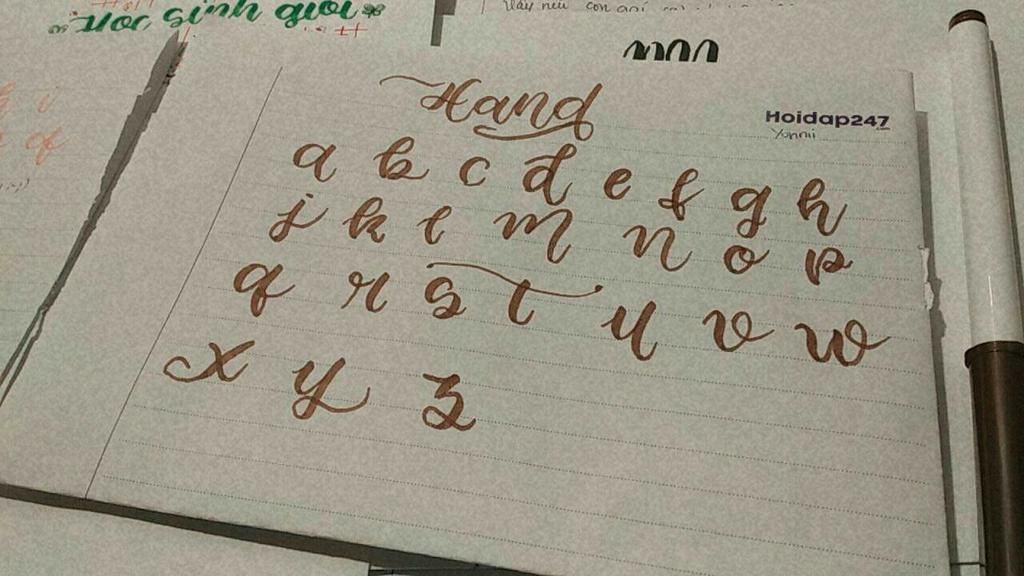 Học sinh giỏi
Vậy nếu con
Hand
Hoidap247
.com
Yonmi
a b c d e f g h
j k l m n o p
q r s t u v w
x y z